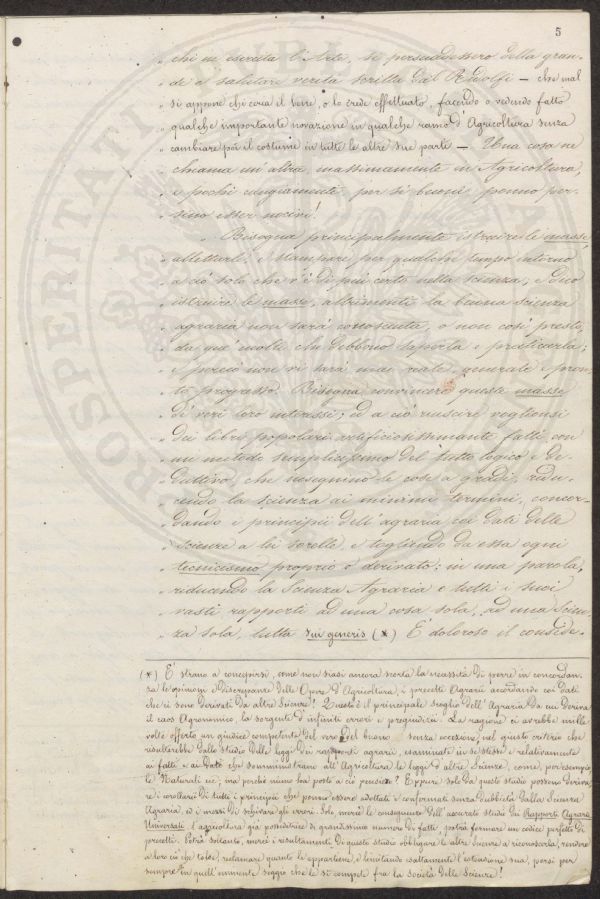 5
„ chi ne esercita l'Arte, si persuadessero della gran-
„ de e salutare verità scritta dal Ridolfi — che mal
„ si appone chi cerca il bene, o lo crede effettuato, facendo o vedendo fatto
„ qualche importante novazione in qualche ramo d'Agricoltura senza
„ cambiare poi il costume in tutte le altre sue parti —. Una cosa ne
„ chiama un'altra, massimamente in Agricoltura,
„ e pochi cangiamenti, per sì buoni, ponno per-
„ sino esser nocivi!
„ Bisogna principalmente istruire le masse,
„ allettarle, e stampare per qualche tempo intorno
„ a ciò solo che v'è di più certo nella scienza; e dico
„ istruire le masse, altrimenti la buona scienza
„ agraria non sarà conosciuta, o non così presto,
„ da que' molti che debbono saperla e praticarla;
„ e perciò non vi sarà mai reale, generale e pron-
„ to progresso. Bisogna convincere queste masse
„ de' veri loro interessi; ed a ciò riuscire voglionsi
„ dei libri popolari artificiosissimamente fatti, con
„ un metodo semplicissimo del tutto logico e de-
„ duttivo, che insegnino le cose a gradi, ridu-
„ cendo la scienza ai minimi termini, concor-
„ dando i principii dell'agraria coi dati delle
„ scienze a lei sorelle, e togliendo da essa ogni
„ tecnicismo proprio o derivato: in una parola,
„ riducendo la Scienza Agraria e tutti i suoi
„ vasti rapporti ad una cosa sola, ad una Scien-
„ za sola, tutta sui generis (*) È doloroso il conside-
(*) È strano a concepirsi, come non siasi ancora scorta la necessità di porre in concordan-
za le opinioni discrepanti delle Opere d'Agricoltura, i precetti Agrarii accordando coi dati
che ci sono derivati da altre Scienze! Questo è il principale scoglio dell'Agraria da cui deriva
il caos Agronomico, la sorgente d'infiniti errori e pregiudizii. La ragione ci avrebbe mille
volte offerto un giudice competente del vero e del buono senza eccezione, nel giusto criterio che
risulterebbe dallo studio delle leggi dei rapporti agrarii, esaminati in se stessi e relativamente
ai fatti e ai dati che somministrano all'Agricoltura le leggi d'altre Scienze, come, per esempio,
le Naturali ec; ma perchè niuno ha posto a ciò pensiero? Eppure solo da questo studio possono deriva-
re i corollarii di tutti i principii che ponno essere adottati e confermati senza dubbietà dalla Scienza
Agraria, ed i mezzi di schivare gli errori. Solo mercè le conseguenze dell'accurato studio dei Rapporti Agrarii
Universali l'agricoltura già posseditrice di grandissimo numero di fatti, potrà formare un codice perfetto di
precetti. Potrà soltanto, mercè i resultamenti di questo studio obbligare le altre scienze a riconoscerla, rendere
a loro ciò che tolse, reclamare quanto le appartiene, e limitando esattamente l'estensione sua, porsi per
sempre in quell'eminente seggio che le si compete fra la società delle Scienze!
PROSPERITATI